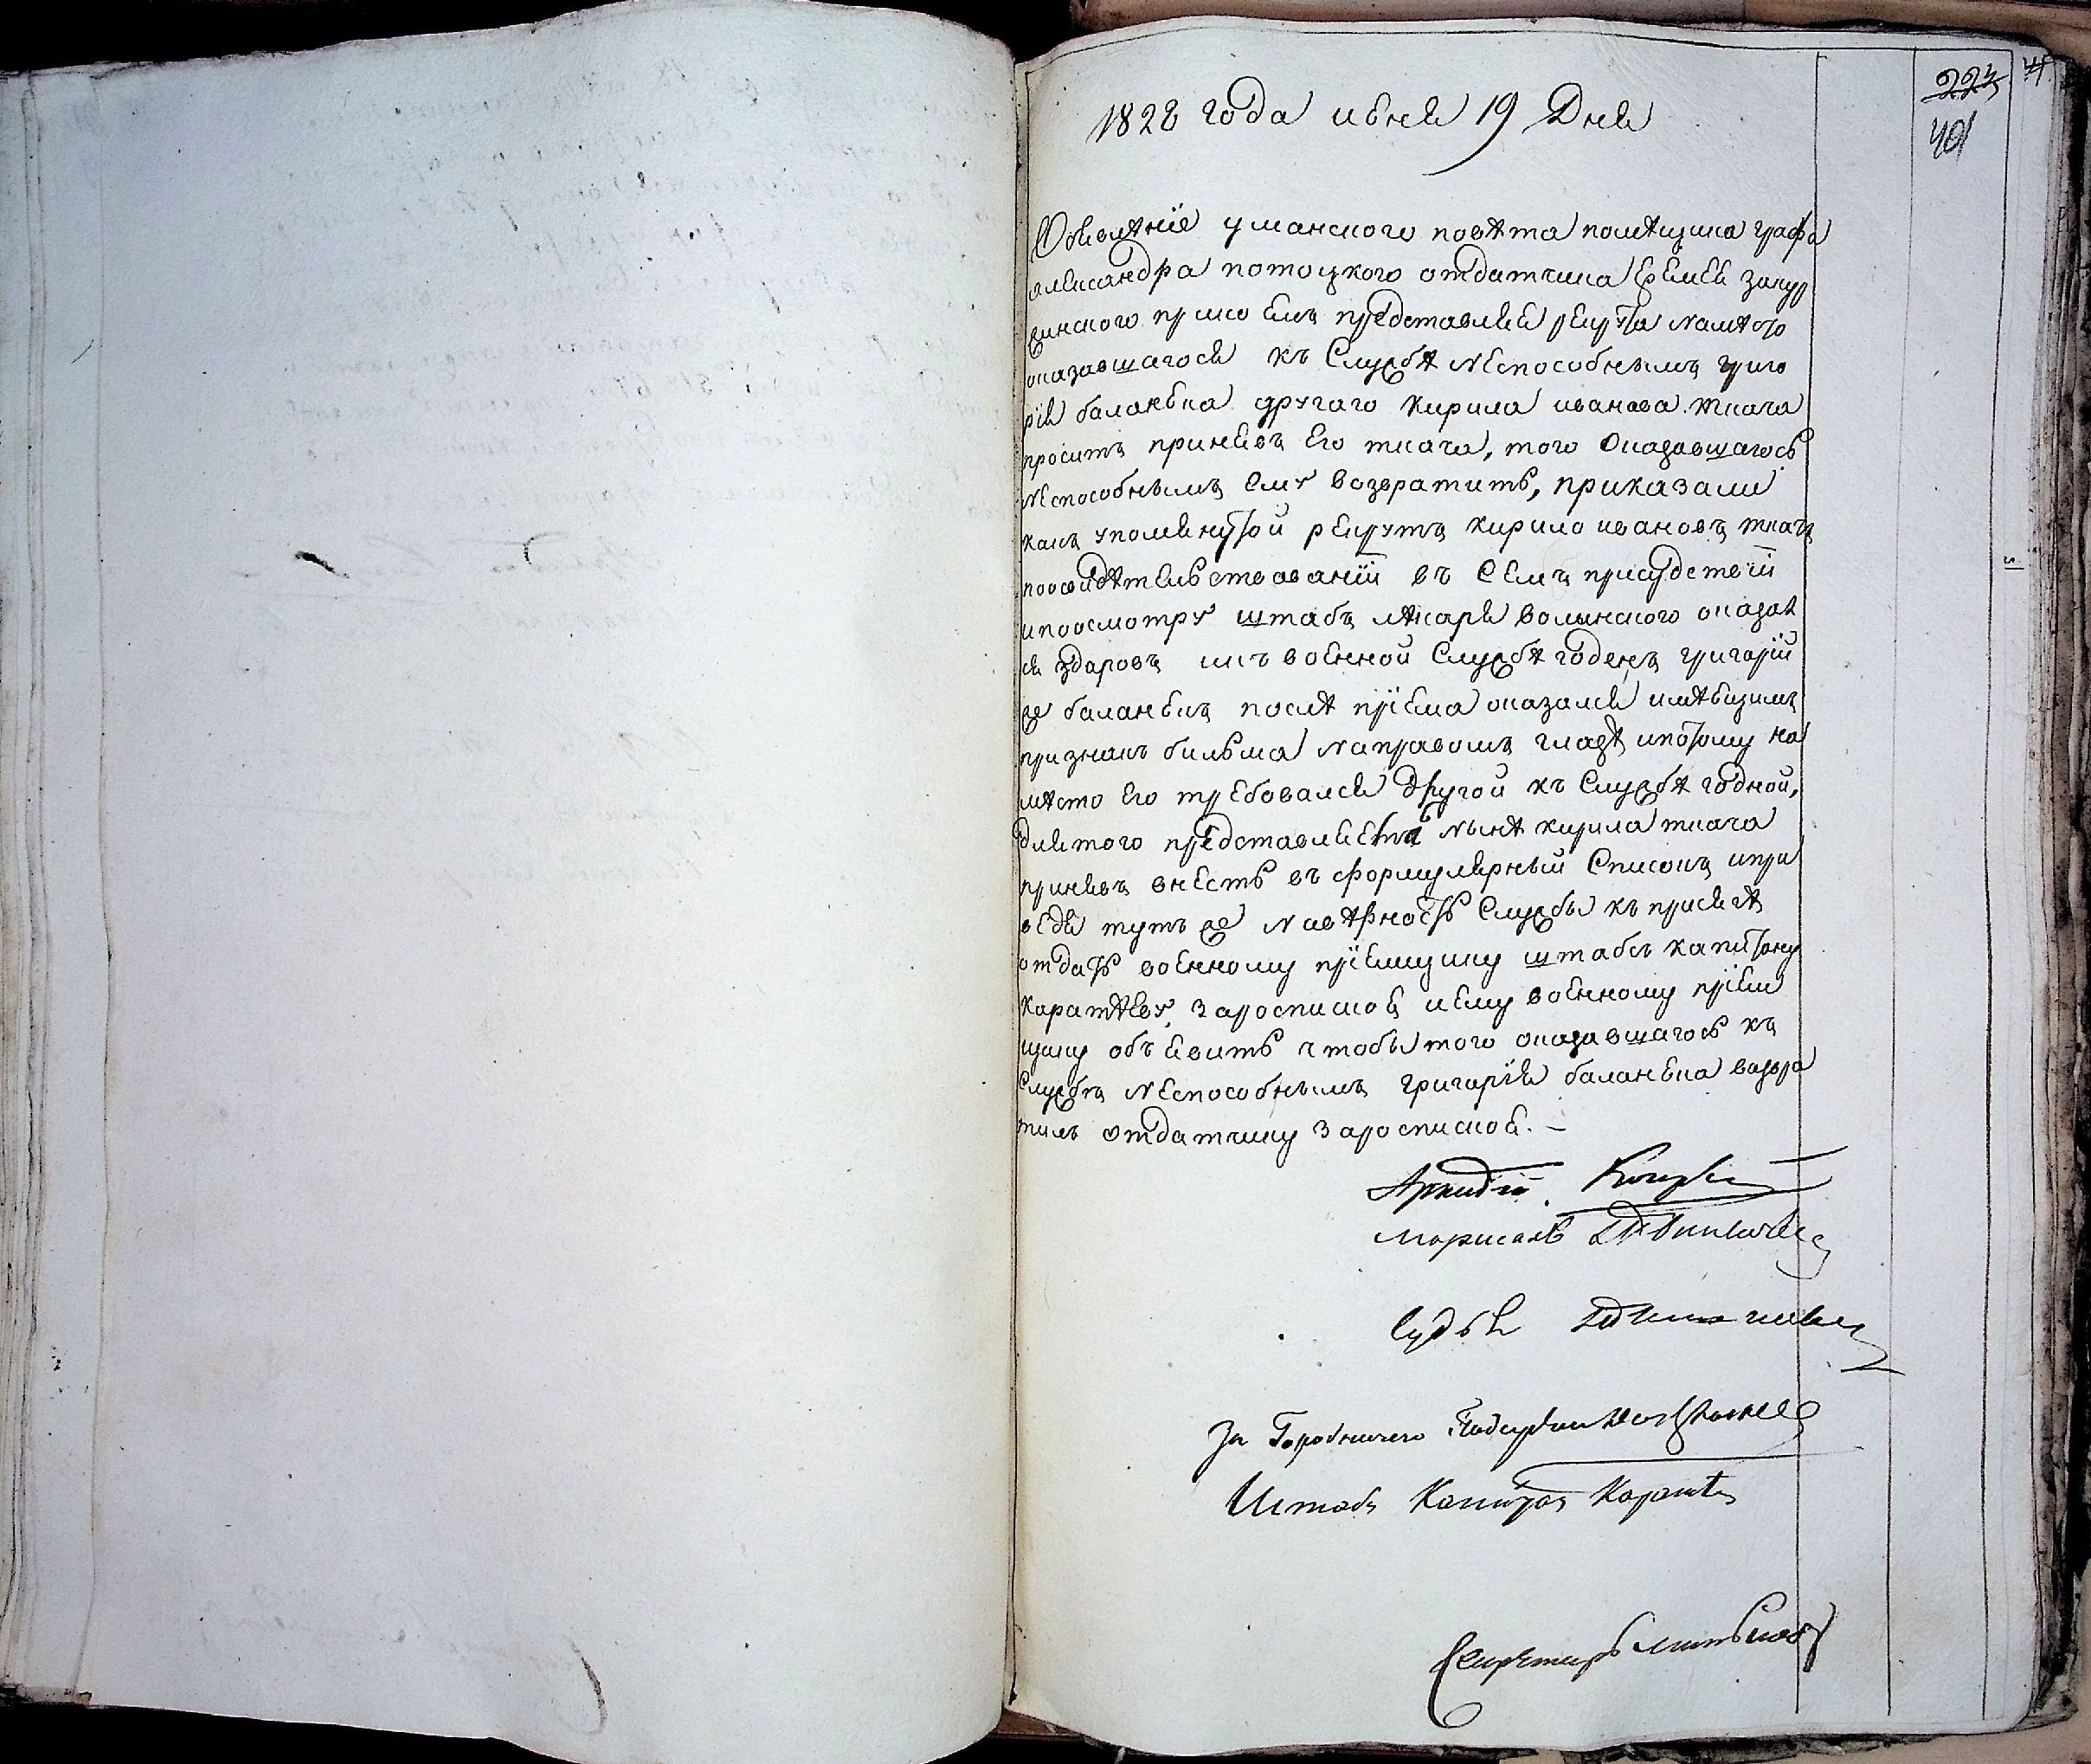 223
401
1828 года июня 19 Дня
Объявленіе уманского повѣта помѣщика графа
александра потоцкого отдатчика Еремея закур
жинского при коемъ представляя рекрута намѣсто
оказавшагося къ Службѣ неспособнымъ григо
рія баланюка другаго кирила иванова ткача
проситъ принявъ его ткача, того оказавшагось
неспособнымъ ему возвратить, приказали
какъ упомянутой рекрутъ кирило ивановъ ткачъ
поосвидѣтельствованіи въ семъ присудствіи
ипоосмотру штабъ лѣкаря волынского оказал
ся здаровъ икъ военной Службѣ годенъ григорій
же баланюкъ послѣ пріема оказался имѣющимъ
признакъ бильма направомъ глазѣ ипотому на
мѣсто его требовался другой къ Службѣ годной,
длятого представляемаго нынѣ кирила ткача
принявъ внесть въ формулярный Списокъ ипри
ведя тутъ же навѣрность Службы къ присягѣ
отдать военному пріемщику штабсъ капитану
каратѣеву зароспискою иему военному пріем
щику объявить чтобы того оказавшагось къ
Службѣ неспособнымъ григорія баланюка возвра
тилъ отдатчику зароспискою.
Аркадій
Судья
За Городничего
Штабъ Капитанъ
Секретарь